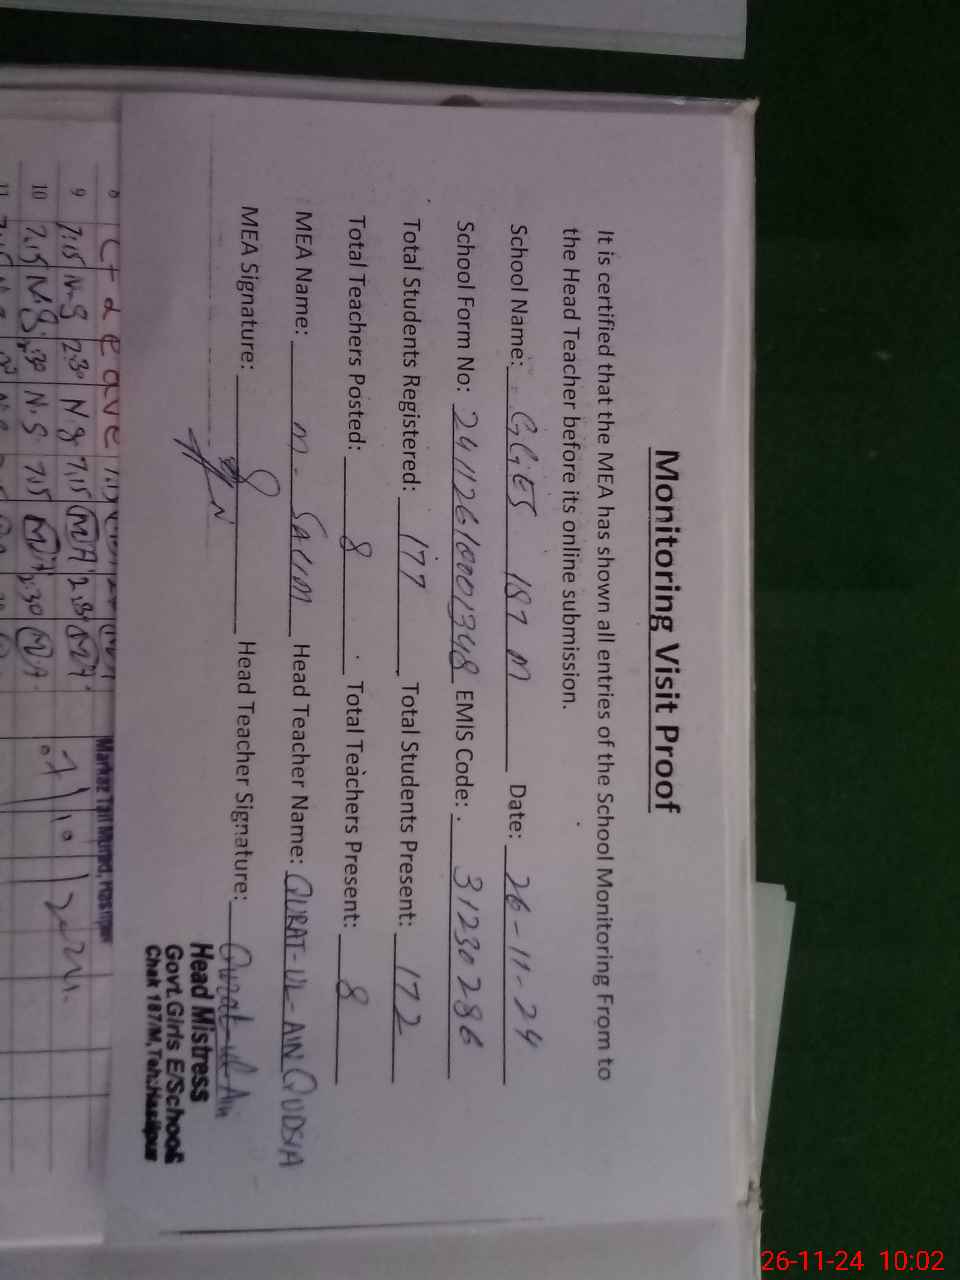 Monitoring Visit Proof
It is certified that the MEA has shown all entries of the School Monitoring From to
the Head Teacher before its online submission.
School Name: GGES 187 M Date: 26-11-24
School Form No: 24112610001348 EMIS Code: 31230286
Total Students Registered: 177 Total Students Present: 172
Total Teachers Posted: 8 Total Teachers Present: 8
MEA Name: M. SALIM Head Teacher Name: QURAT-UL-AIN QUDSIA
MEA Signature: Head Teacher Signature: Qurat-ul-Ain
Head Mistress
Govt. Girls E/School
Chak 187/M, Teh: Hasilpur
8 Leave
9 7:15 N.S 2:30 N.S 7:15 MA 2:30 MA
10 7:15 N.S 2:30 N.S 7:15 MA 2:30 MA
11
26-11-24 10:02